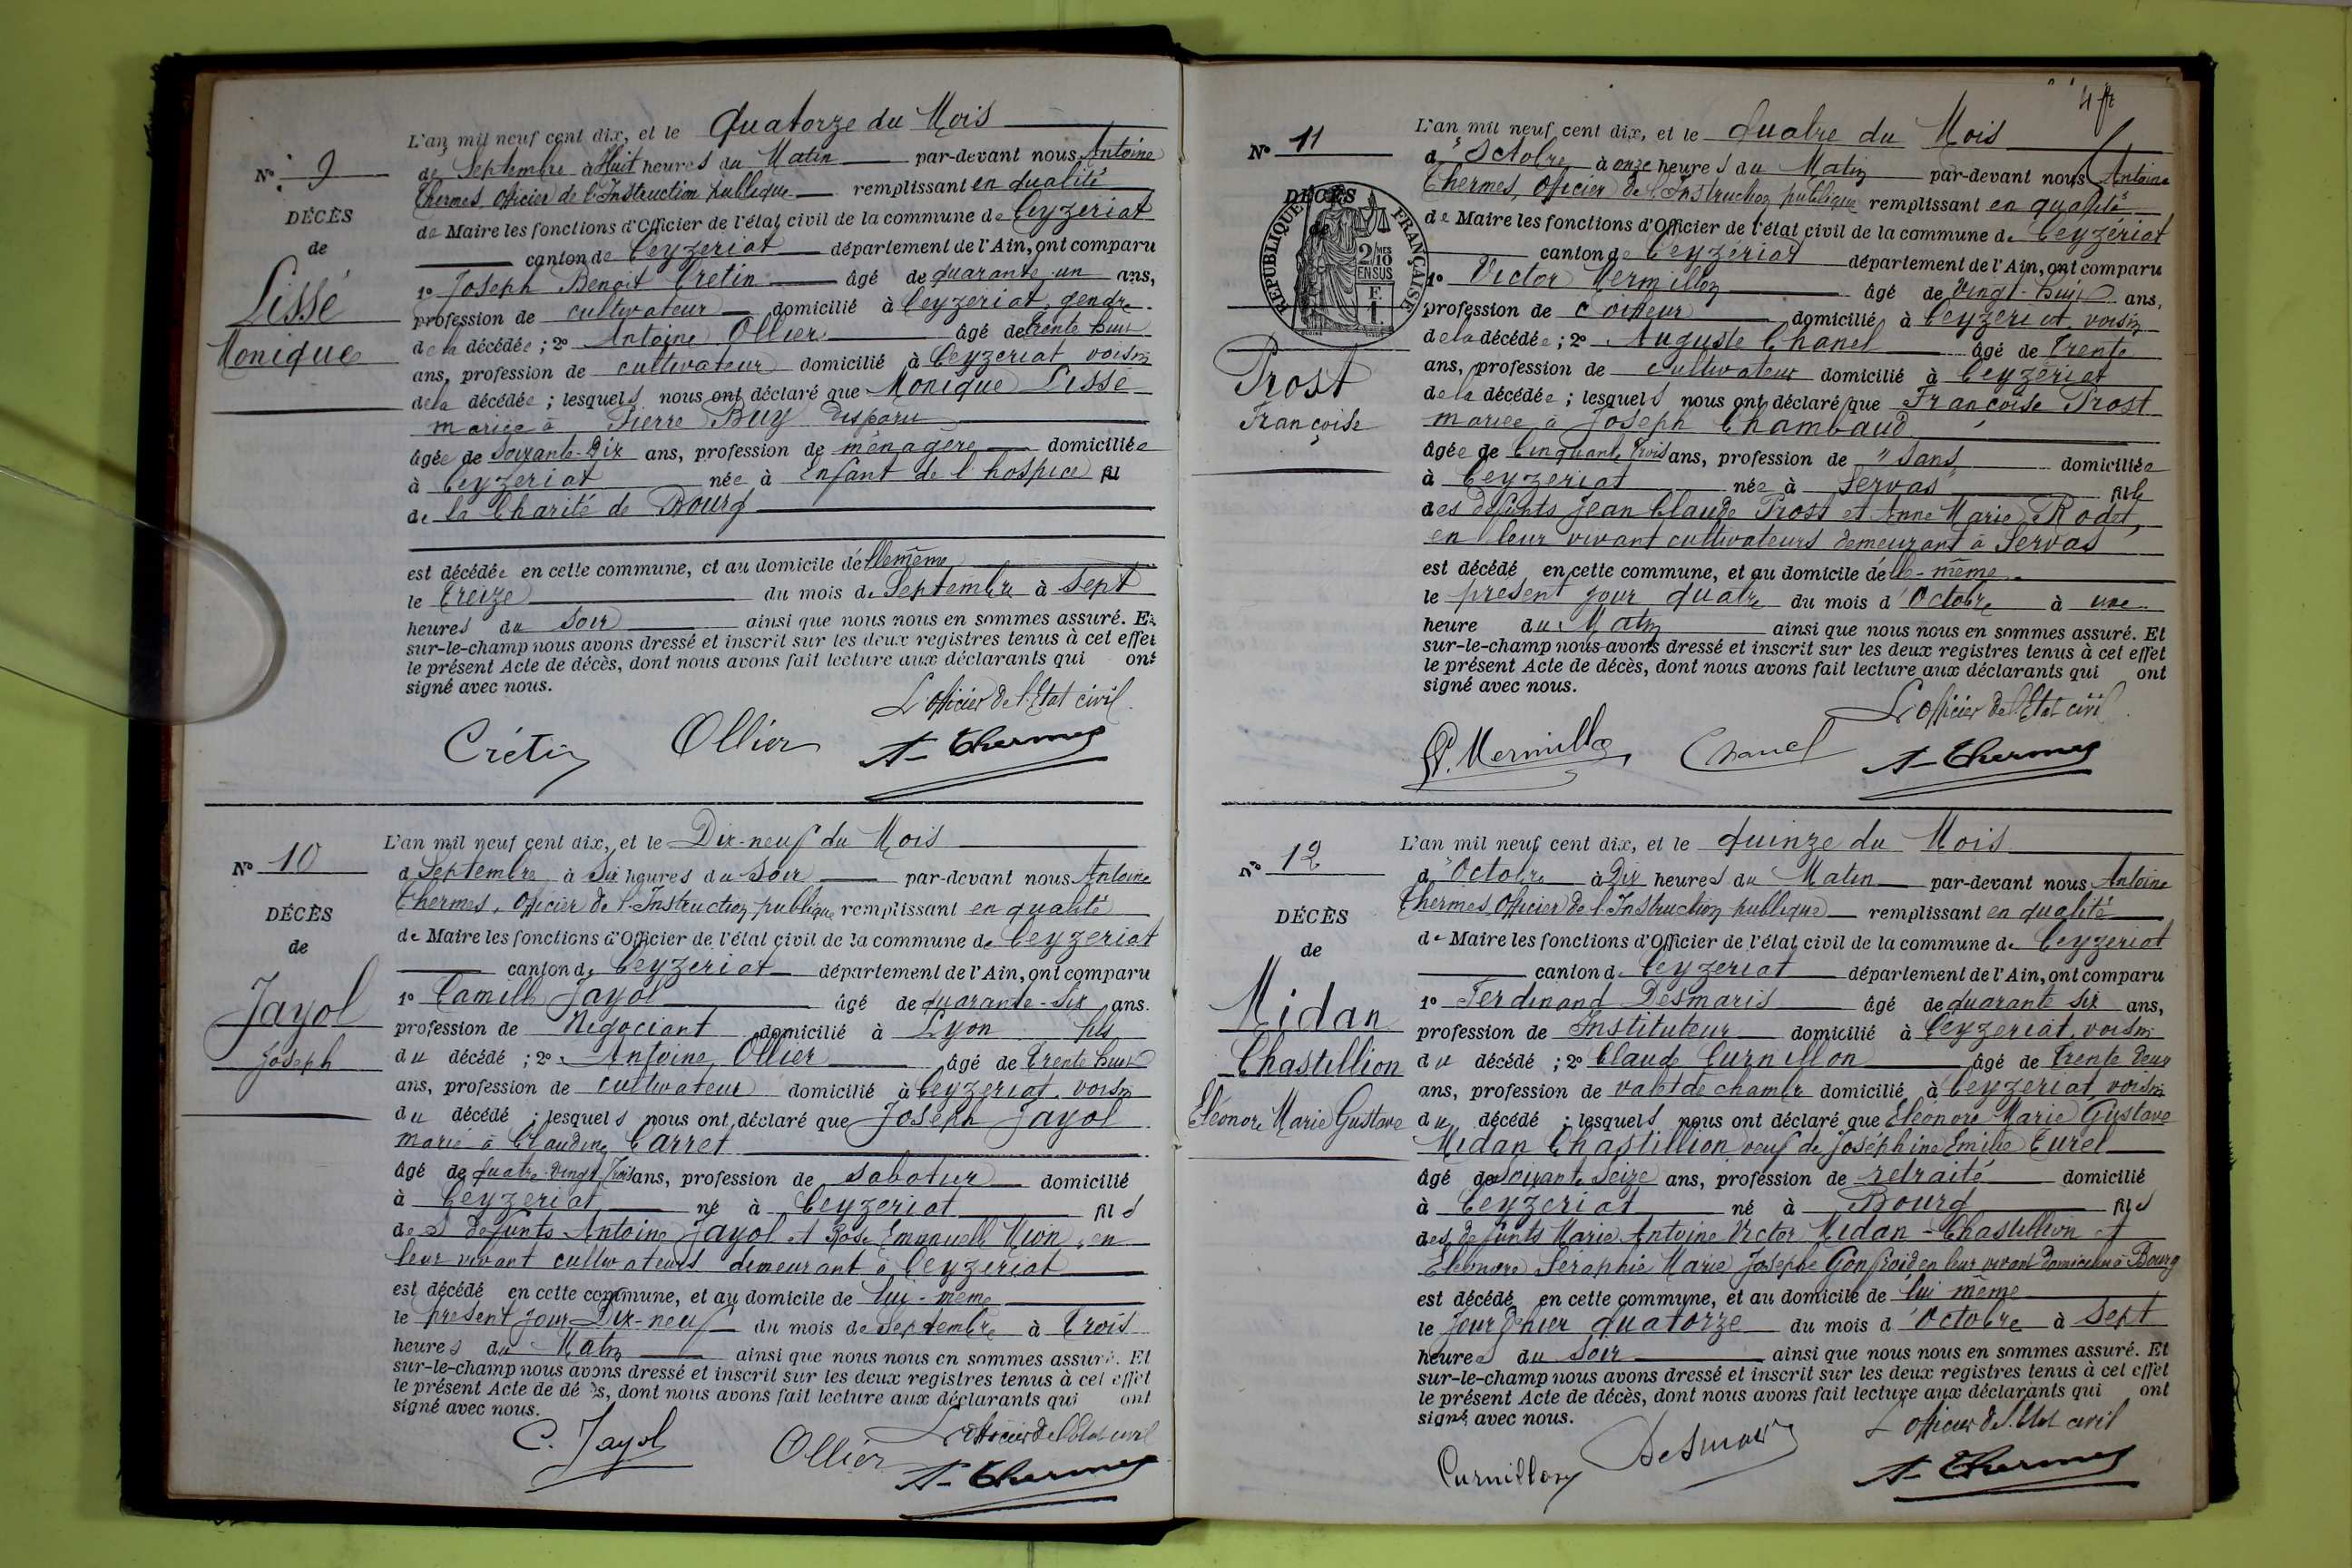 L'an mil neuf cent dix, et le Quatorze du Mois
N° 9
de Septembre à Huit heures du Matin par-devant nous Antoine
Thermes, Officier de l'Instruction publique remplissant en qualité
DÉCÈS
de Maire les fonctions d'Officier de l'état civil de la commune de Ceyzeriat
de
canton de Ceyzeriat département de l'Ain, ont comparu
Lissé
1° Joseph Benoit Cretin âgé de quarante un ans,
profession de cultivateur domicilié à Ceyzeriat, gendre
Monique
de la décédée ; 2° Antoine Ollier âgé de trente huit
ans, profession de cultivateur domicilié à Ceyzeriat voisin
de la décédée ; lesquels nous ont déclaré que Monique Lissé
mariée à Pierre Buy disparu
âgée de soixante-Dix ans, profession de ménagère domiciliée
à Ceyzeriat née à enfant de l'hospice fil
de la Charité de Bourg
est décédée en cette commune, et au domicile d'ellemême
le treize du mois de Septembre à sept
heures du soir ainsi que nous nous en sommes assuré. Et
sur-le-champ nous avons dressé et inscrit sur les deux registres tenus à cet effet
le présent Acte de décès, dont nous avons fait lecture aux déclarants qui ont
signé avec nous.
L'officier de l'Etat civil.
Crétin Ollier A- Thermes
L'an mil neuf cent dix, et le Dix-neuf du Mois
N° 10
d Septembre à Six heures du soir par-devant nous Antoine
Thermes, Officier de l'Instruction publique remplissant en qualité
DÉCÈS
de Maire les fonctions d'Officier de l'état civil de la commune de Ceyzeriat
de
canton de Ceyzeriat département de l'Ain, ont comparu
Jayol
1° Camille Jayol âgé de quarante-six ans.
profession de Négociant domicilié à Lyon fils
Joseph
du décédé ; 2° Antoine Ollier âgé de trente huit
ans, profession de cultivateur domicilié à Ceyzeriat, voisin
du décédé ; lesquels nous ont déclaré que Joseph Jayol
marié à Claudine Carret
âgé de quatre-vingt trois ans, profession de sabotier domicilié
à Ceyzeriat né à Ceyzeriat fils
des defunts Antoine Jayol et Rose Emmanuelle Mion, en
leur vivant cultivateurs demeurant à Ceyzeriat
est décédé en cette commune, et au domicile de lui-même
le présent jour Dix-neuf du mois de Septembre à trois
heures du Matin ainsi que nous nous en sommes assuré. Et
sur-le-champ nous avons dressé et inscrit sur les deux registres tenus à cet effet
le présent Acte de décès, dont nous avons fait lecture aux déclarants qui ont
signé avec nous.
L'officier de l'Etat civil
C. Jayol Ollier A- Thermes
L'an mil neuf cent dix, et le Quatre du Mois
N° 11
d'Octobre à onze heures du Matin par-devant nous Antoine
Thermes, Officier de l'Instruction publique remplissant en qualité
DÉCÈS
de
RÉPUBLIQUE FRANÇAISE
2/10 MES
EN SUS
F.
1.
de Maire les fonctions d'Officier de l'état civil de la commune de Ceyzériat
canton de Ceyzériat département de l'Ain, ont comparu
1° Victor Mermillon âgé de vingt-huit ans,
profession de coiffeur domicilié à Ceyzeriat voisin
de la décédée ; 2° Auguste Chanel âgé de trente
Prost
ans, profession de cultivateur domicilié à Ceyzériat
de la décédée ; lesquels nous ont déclaré que Françoise Prost
Françoise
mariée à Joseph Chambaud
âgée de Cinquante trois ans, profession de "sans domiciliée
à Ceyzeriat née à Servas fille
des défunts Jean Claude Prost et Anne Marie Rodet,
en leur vivant cultivateurs demeurant à Servas
est décédé en cette commune, et au domicile d'elle-même
le présent jour quatre du mois d'Octobre à une
heure du Matin ainsi que nous nous en sommes assuré. Et
sur-le-champ nous avons dressé et inscrit sur les deux registres tenus à cet effet
le présent Acte de décès, dont nous avons fait lecture aux déclarants qui ont
signé avec nous.
L'officier de l'Etat civil.
V. Mermillon Chanel A- Thermes
L'an mil neuf cent dix, et le quinze du Mois
N° 12
d'Octobre à Dix heures du Matin par-devant nous Antoine
Thermes Officier de l'Instruction publique remplissant en qualité
DÉCÈS
de Maire les fonctions d'Officier de l'état civil de la commune de Ceyzeriat
de
canton de Ceyzeriat département de l'Ain, ont comparu
Midan
1° Ferdinand Desmaris âgé de quarante six ans,
profession de Instituteur domicilié à Ceyzeriat, voisin
Chastillion
du décédé ; 2° Claude Curnillon âgé de trente deux
ans, profession de valet de chambre domicilié à Ceyzeriat voisin
Eléonore Marie Gustave
du décédé ; lesquels nous ont déclaré que Eléonore Marie Gustave
Midan Chastillion veuf de Joséphine Emilie Curel
âgé de soixante seize ans, profession de retraité domicilié
à Ceyzeriat né à Bourg fils
des defunts Marie Antoine Victor Midan-Chastillion et
Eléonore Séraphie Marie Josephe Gonfroid en leur vivant domiciliés à Bourg
est décédé en cette commune, et au domicile de lui même
le jour d'hier quatorze du mois d'Octobre à sept
heures du soir ainsi que nous nous en sommes assuré. Et
sur-le-champ nous avons dressé et inscrit sur les deux registres tenus à cet effet
le présent Acte de décès, dont nous avons fait lecture aux déclarants qui ont
signé avec nous.
L'officier de l'Etat civil
Curnillon Desmaris A- Thermes